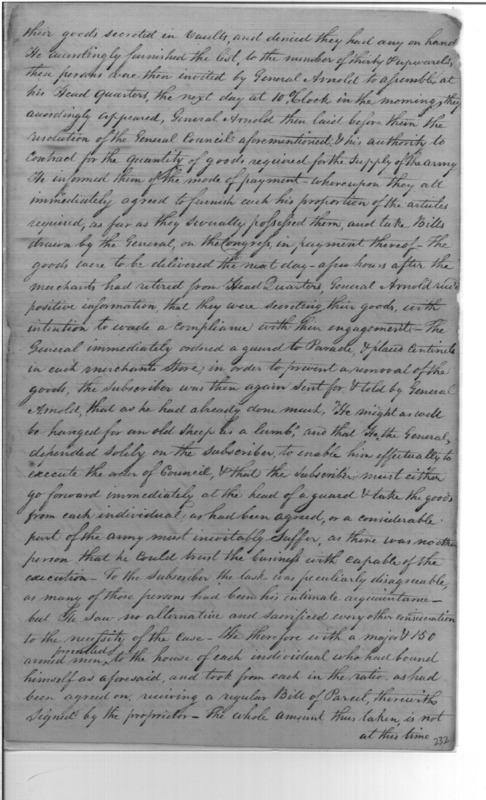 their goods secreted in Vaults, and denied they had any on hand
He accordingly furnished the list, to the number of thirty & upwards,
these persons were then invited by General Arnold to assemble at
his Head Quarters, the next day at 10 oClock in the morning, they
accordingly appeared, General Arnold then laid before them the
resolution of the General Council aforementioned & his authority to
Contract for the quantity of goods required for the supply of the army
He informed them of the mode of payment - whereupon they all
immediately agreed to furnish each his proportion of the articles
required, as far as they severally possessed them, and take Bills
drawn by the General, on the Congress, in payment thereof - The
goods were to be delivered the next day - a few hours after the
merchants had retired from Head Quarters, General Arnold rec'd
positive information, that they were secreting their goods, with
intention to evade a compliance with their engagements - The
General immediately ordered a guard to Parade, & placed Centinels
in each merchants store, in order to prevent a removal of the
goods, the Subscriber was then again sent for, & told by General
Arnold, that as he had already done much, He might as well
be hanged for an old Sheep as a lamb, and that He, the General,
depended solely on the Subscriber, to enable him effectually to
execute the order of Council, & that the Subscriber must either
go forward immediately at the head of a guard & take the goods
from each individual, as had been agreed, or a considerable
part of the army must inevitably suffer, as there was no other
person that he could trust the business with capable of the
execution - To the Subscriber the task was peculiarly disagreeable,
as many of those persons had been his intimate acquaintance -
but He saw no alternative and sacrificed every other consideration
to the necessity of the case - He therefore with a major & 150
armed men, proceeded to the house of each individual who had bound
himself as aforesaid, and took from each in the ratio as had
been agreed on, receiving a regular Bill of Parcel, therewith
Signed by the proprietor - The whole amount thus taken, is not
at this time
232